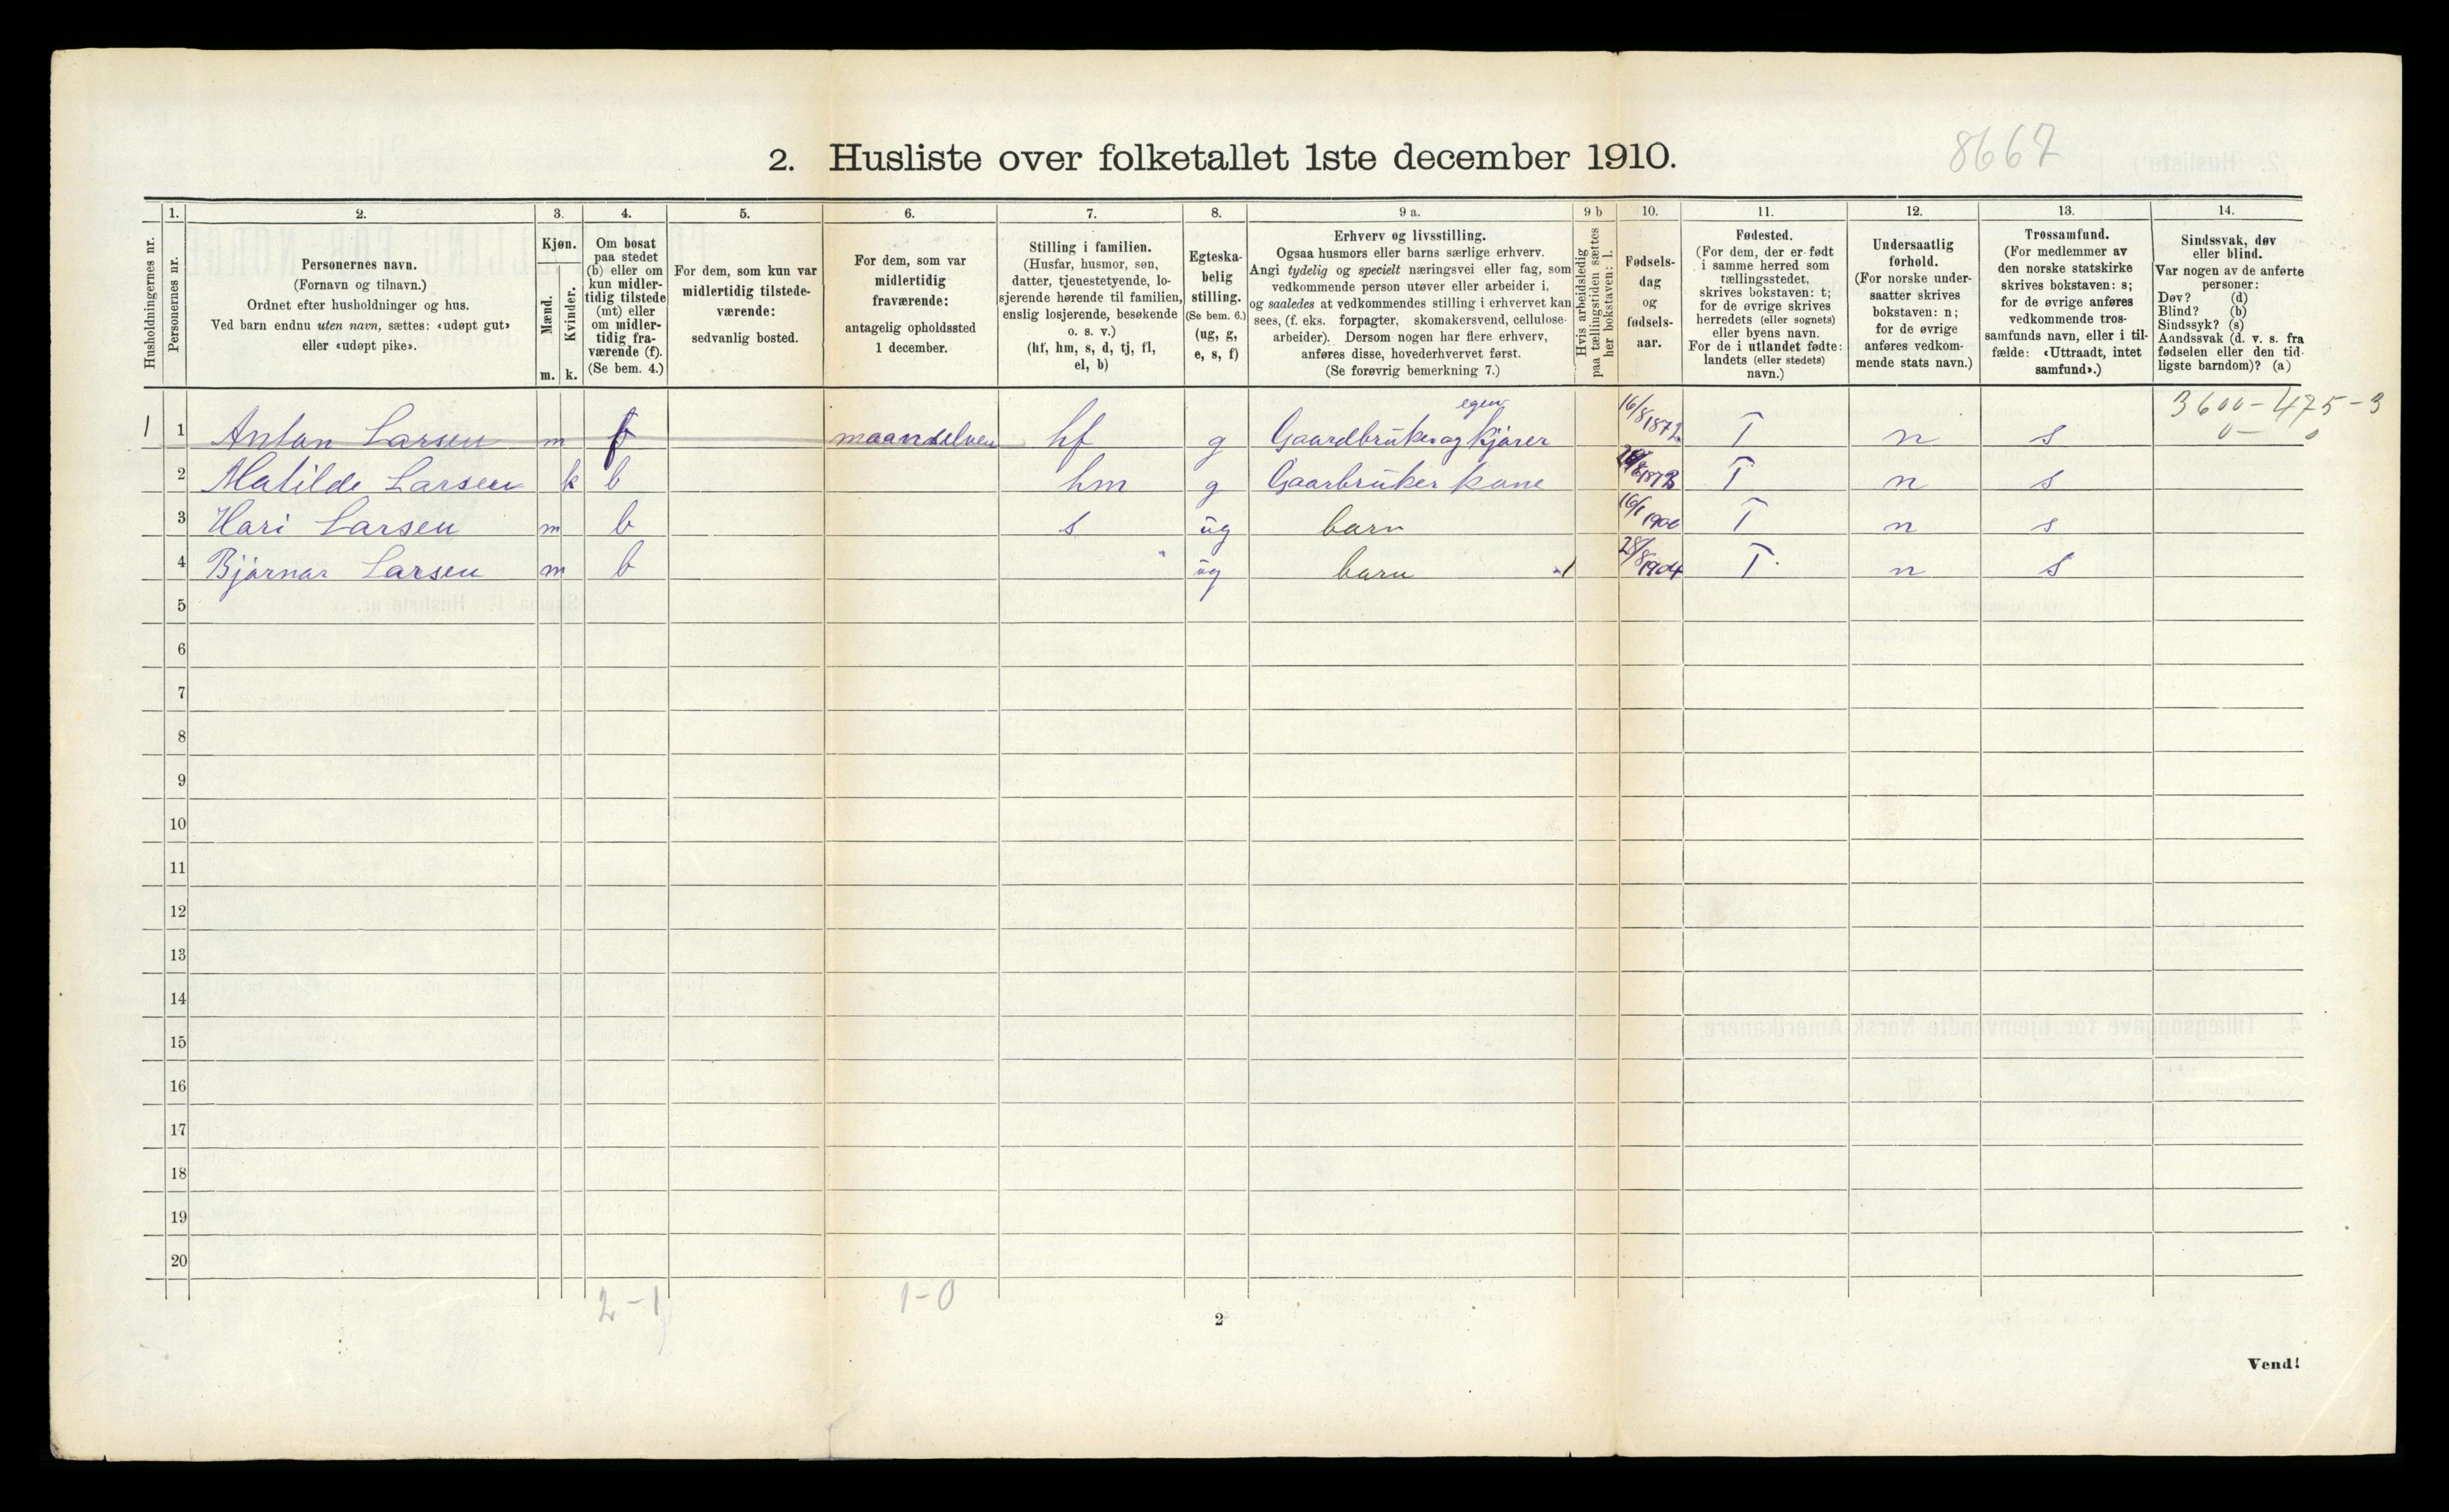 8667
2. Husliste over folketallet 1ste december 1910.
Husholdningernes nr.
1.
Personernes nr.
2.
Personernes navn.
(Fornavn og tilnavn.)
Ordnet efter husholdninger og hus.
Ved barn endnu uten navn, sættes: «udøpt gut»
eller «udøpt pike».
3.
Kjøn.
Mænd.
Kvinder.
m. k.
4.
Om bosat
paa stedet
(b) eller om
kun midler-
tidig tilstede
(mt) eller
om midler-
tidig fra-
værende (f).
(Se bem. 4.)
5.
For dem, som kun var
midlertidig tilstede-
værende:
sedvanlig bosted.
6.
For dem, som var
midlertidig
fraværende:
antagelig opholdssted
1 december.
7.
Stilling i familien.
(Husfar, husmor, søn,
datter, tjenestetyende, lo-
sjerende hørende til familien,
enslig losjerende, besøkende
o. s. v.)
(hf, hm, s, d, tj, fl,
el, b)
8.
Egteska-
belig
stilling.
(Se bem. 6.)
(ug, g,
e, s, f)
9 a.
Erhverv og livsstilling.
Ogsaa husmors eller barns særlige erhverv.
Angi tydelig og specielt næringsvei eller fag, som
vedkommende person utøver eller arbeider i,
og saaledes at vedkommendes stilling i erhvervet kan
sees, (f. eks. forpagter, skomakersvend, cellulose-
arbeider). Dersom nogen har flere erhverv,
anføres disse, hovederhvervet først.
(Se forøvrig bemerkning 7.)
9 b
Hvis arbeidsledig
paa tællingstiden sættes
her bokstaven: l.
10.
Fødsels-
dag
og
fødsels-
aar.
11.
Fødested.
(For dem, der er født
i samme herred som
tællingsstedet,
skrives bokstaven: t;
for de øvrige skrives
herredets (eller sognets)
eller byens navn.
For de i utlandet fødte:
landets (eller stedets)
navn.)
12.
Undersaatlig
forhold.
(For norske under-
saatter skrives
bokstaven: n;
for de øvrige
anføres vedkom-
mende stats navn.)
13.
Trossamfund.
(For medlemmer av
den norske statskirke
skrives bokstaven: s;
for de øvrige anføres
vedkommende tros-
samfunds navn, eller i til-
fælde: «Uttraadt, intet
samfund».)
14.
Sindssvak, døv
eller blind.
Var nogen av de anførte
personer:
Døv? (d)
Blind? (b)
Sindssyk? (s)
Aandssvak (d. v. s. fra
fødselen eller den tid-
ligste barndom)? (a)
3600-475-3
0- 0
egen
1 1 Anton Larsen m f maandselven hf g Gaardbruker og kjører 16/8 1872 T n s
2 Matilde Larsen k b hm g Gaarbruker kone T n s
3 Hari Larsen m b s ug barn 16/1 1900 T n s
4 Bjarnar Larsen m b " ug barn 28/8 1904 T n s
5
6
7
8
9
10
11
12
13
14
15
16
17
18
19
20
2-1 1-0
2
Vend!